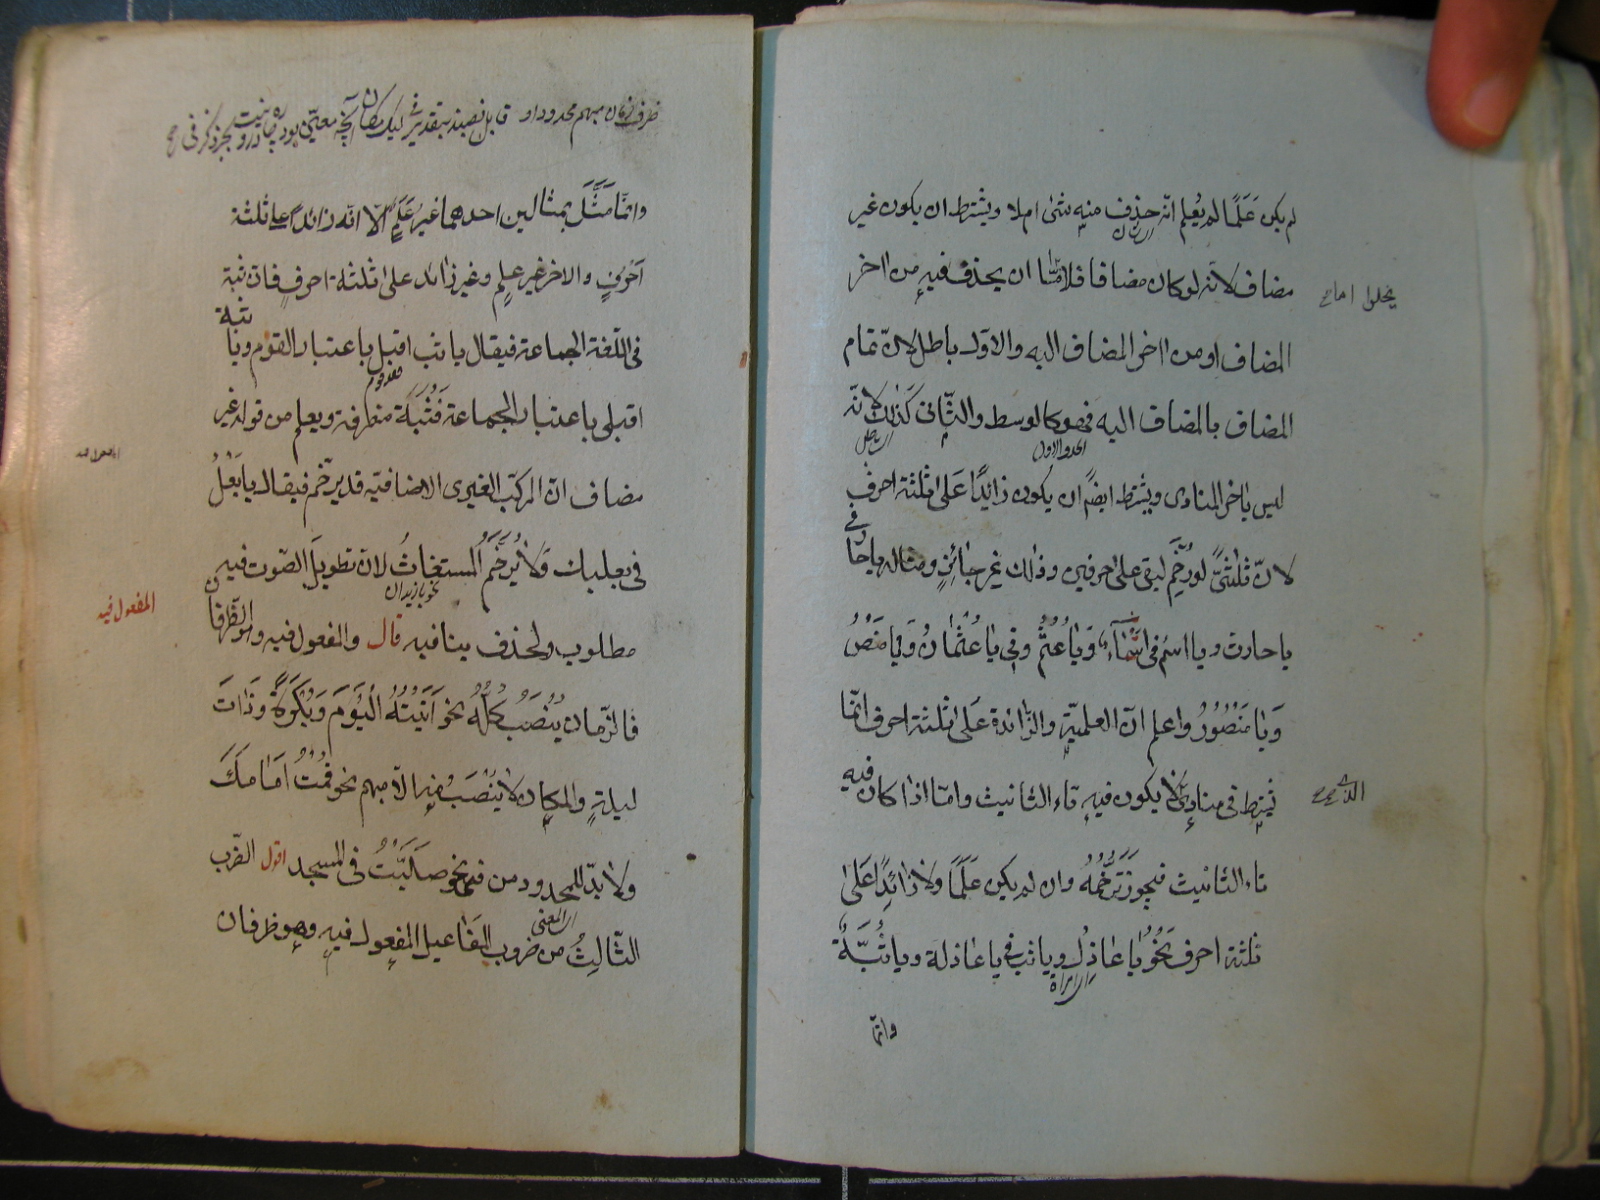 لم يكن عَلَمًا لم يُعلم انّه حذف منه شئ ام لا ويشترط ان يكون غير
مضاف لانّه لو كان مضافا فلا امّا ان يحذف فيه من اخر
المضاف او من اخر المضاف اليه والاوّل باطل لانّ تمام
المضاف بالمضاف اليه فهو كالوسط والثّانى كذلك لانّه
ليس باخر المنادى ويشترط ايضًا ان يكون زايدًا عَلىٰ ثلثة احرف
لانّ ثلثىًّ لو رُخِّمَ لبقى على حرفين وذلك غير جائزٍ ومثاله يا حا فى
يا حارث ويا اسمُ فى اسْمَآء وَيَا عُثْمُ وفى يا عُثْمٰانُ وَيٰا مَنْصُ
وَيٰا مَنْصُوْرُ واعلم انّ العلميّة والزّائدة عَلىٰ ثلثة احرف انّما
يشترط فى منادىً لا يكون فيه تاء التانيث وامّا اذا كان فيه
تاء التانيث فيجوز تَرَخُّمُهُ وان لم يكن عَلَمًا ولا زائِدًا عَلىٰ
ثلثة احرف نَحْوُ يٰا عٰاذِلُ ويا ثب فى يا عاذلة ويا ثُبَّةُ
وانّما
وانّما مَثَّلَ بمثالين احدهما غيرُ عَلَمٍ الّا انّه زائد على ثلثة
اَحْرُفٍ والاخر غير علم وغير زائد على ثلثة احرفٍ فان ثبة
فى اللّغة الجماعة فيقال يا ثب اقبل باعتبار القوم ويا ثبة
اقبلى باعتبار الجماعة فَثُبَة متعارفة ويعلم من قوله غير
مضاف انّ المركّب الغيرى الاضافيّه قد يرخّم فيقال يا بَعْلُ
فى بعلبك وَلٰا يُرَخَّمُ المستغاثُ لانّ تطويل الصّوت فيه
المفعول فيه
مطلوب والحذف ينافيه قال والمفعول فيه وهو الظّرفان
فالزّمان يُنْصَبُ كُلُّهُ نحو اَتَيْتُهُ الْيَوْمَ وَبُكْرَةً وَذٰاتَ
ليلةٍ والمكان لا يُنْصَبُ منه الّا مبهم نحو قُمْتُ اَمٰامكَ
ولا بدّ للمحدود من فى نحو صَلَّيْتُ فى المسجد اقول الضّرب
الثّالِثُ من ضروب المَفَاعيل المفعول فيه وهو ظرفان